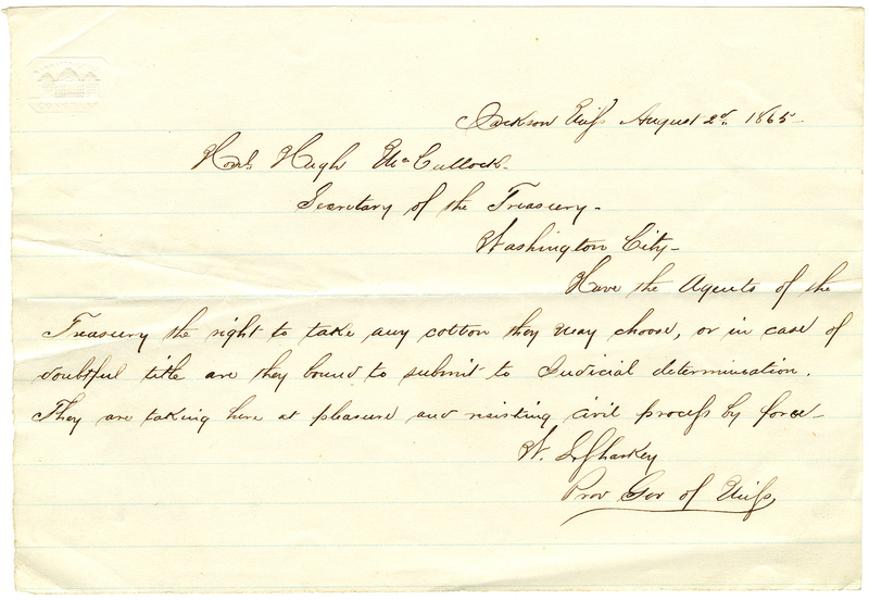 Jackson Miss August 2d. 1865-
Honl. Hugh McCullock.
Secretary of the Treasury-
Washington City-
Have the Agents of the
Treasury the right to take any cotton they may choose, or in case of
doubtful title are they bound to submit to Judicial determination.
They are taking here at pleasure and resisting civil process by force-
W. L. Sharkey
Prov Gov of Miss